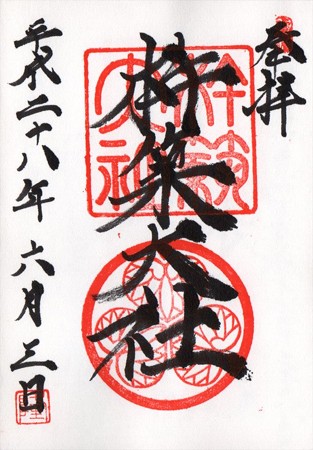 奉拝
杵築大社
平成二十八年六月三日